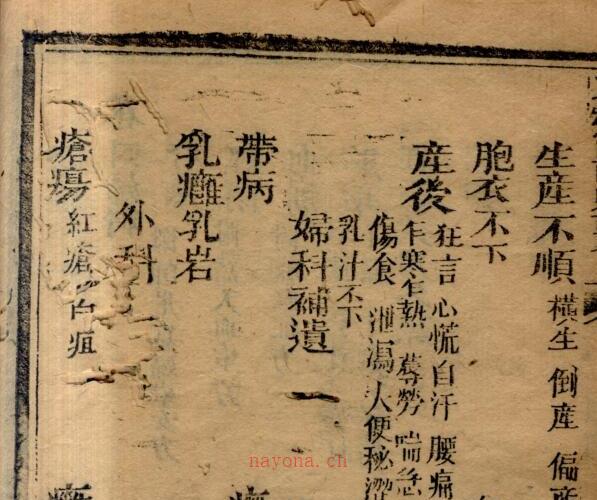 生産不順 橫生 倒産 偏産
胞衣不下
産後 狂言 心慌 自汗 腰痛
乍寒乍熱 蓐勞 喘急
傷食 泄瀉 大便秘澀
乳汁不下
婦科補遺
帶病
乳癰乳岩
外科
瘡瘍 紅瘡 白疽
nayona.ch